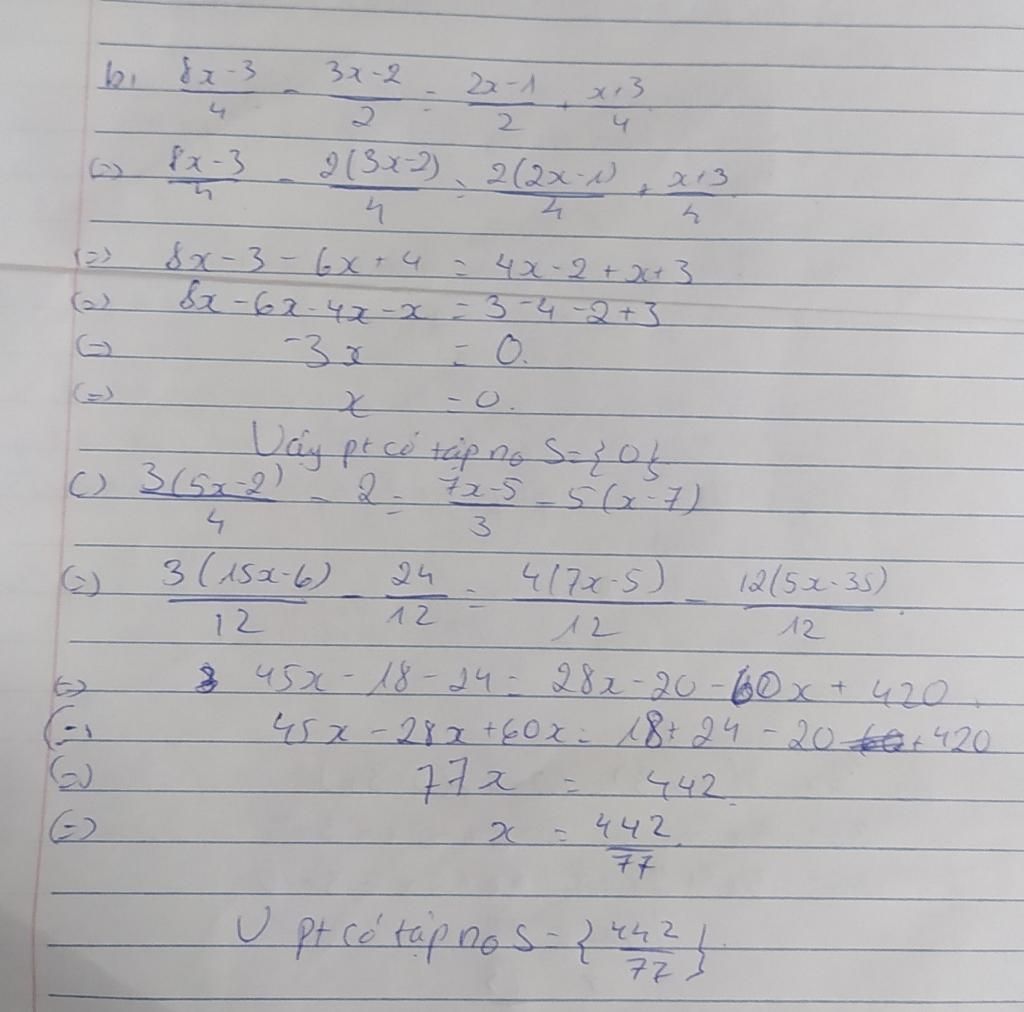 b, (8x-3)/4 - (3x-2)/2 = (2x-1)/2 + (x+3)/4
(=) (8x-3)/4 - 2(3x-2)/4 = 2(2x-1)/4 + (x+3)/4
(=) 8x-3-6x+4 = 4x-2+x+3
(=) 8x-6x-4x-x = 3-4-2+3
(=) -3x = 0.
(=) x = 0.
Vậy pt có tập no S={0}
c) 3(5x-2)/4 - 2 = (7x-5)/3 - 5(x-7)
(=) 3(15x-6)/12 - 24/12 = 4(7x-5)/12 - 12(5x-35)/12
(=) 45x-18-24 = 28x-20-60x+420.
(=) 45x-28x+60x = 18+24-20+420
(=) 77x = 442.
(=) x = 442/77.
V pt có tập no S={442/77}